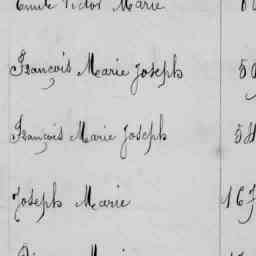 Emile Victor Marie
François Marie Joseph 50
François Marie Joseph 58
Joseph Marie 167
Marie